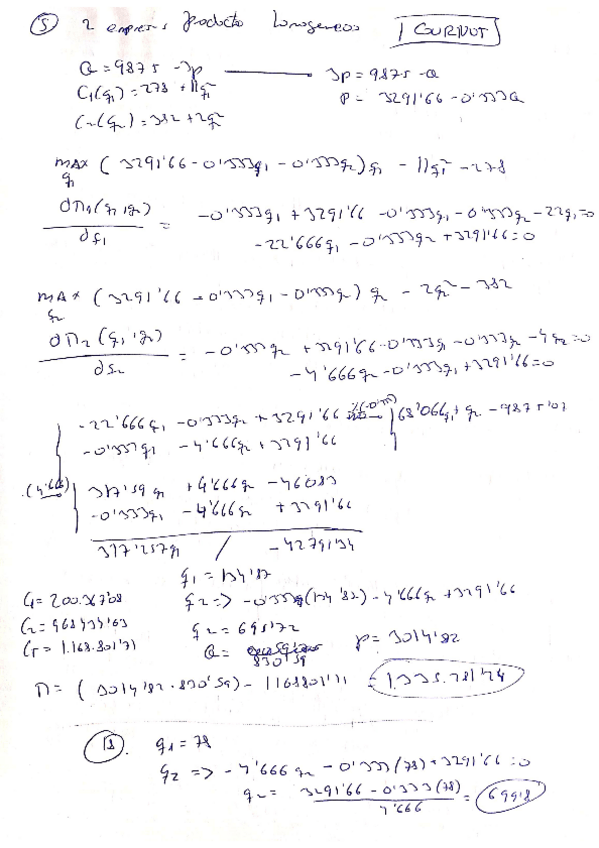 ⑤ 2 empresas producto homogeneos COURNOT
Q = 9875 - 3p — 3p = 9875 - Q
C₁(q₁) = 278 + 11q₁² P = 3291'66 - 0'333Q
C₂(q₂) = 382 + 2q₂²
max q₁ (3291'66 - 0'333q₁ - 0'333q₂) q₁ - 11q₁² - 278
dΠ₁(q₁,q₂) / dq₁ = -0'333q₁ + 3291'66 - 0'333q₁ - 0'333q₂ - 22q₁ = 0
-22'666q₁ - 0'333q₂ + 3291'66 = 0
max q₂ (3291'66 - 0'333q₁ - 0'333q₂) q₂ - 2q₂² - 382
dΠ₂(q₁,q₂) / dq₂ = -0'333q₂ + 3291'66 - 0'333q₁ - 0'333q₂ - 4q₂ = 0
-4'666q₂ - 0'333q₁ + 3291'66 = 0
-22'666q₁ - 0'333q₂ + 3291'66 68'066q₁ + q₂ - 9875'07
-0'333q₁ - 4'666q₂ + 3291'66
·(4'666) 317'59q₁ + 4'666q₂ - 46083
-0'333q₁ - 4'666q₂ + 3291'66
317'257q₁ / -42791'34
q₁ = 134'87
C₁ = 200.367'08 q₂ => -0'333(134'87) - 4'666q₂ + 3291'66
C₂ = 968434'63 q₂ = 695'72
CT = 1.168.801'71 Q = 830'59 P = 3014'82
Π = (3014'82 · 830'59) - 1168801'71 = 1.335.281'74
B. q₁ = 78
q₂ => -4'666q₂ - 0'333(78) + 3291'66 = 0
q₂ = 3291'66 - 0'333(78) / 4'666 = 699'8